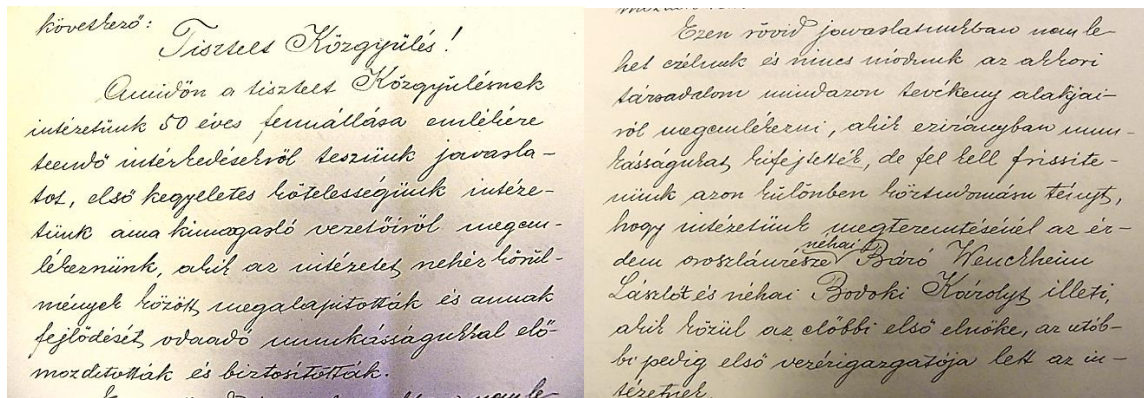 következő:
Tisztelt Közgyűlés!
Amidőn a tisztelt Közgyűlésnek
intézetünk 50 éves fennállása emlékére
teendő intézkedésekről teszünk javasla-
tot, első kegyeletes kötelességünk intéze-
tünk ama kimagasló vezetőiről megem-
lékeznünk, akik az intézetet nehéz körül-
mények között megalapították és annak
fejlődését odaadó munkásságukkal elő-
mozdították és biztosították.
Ezen rövid javaslatunkban nem le-
het czélunk és nincs módunk az akkori
társadalom mindazon tevékeny alakjai-
ról megemlékezni, akik ezirányban mun-
kásságukat kifejtették, de fel kell frissíte-
nünk azon különben köztudomásu tényt,
hogy intézetünk megteremtésénél az ér-
dem oroszlánrésze néhai Báró Wenckheim
Lászlót és néhai Bodoki Károlyt illeti,
akik közül az előbbi első elnöke, az utób-
bi pedig első vezérigazgatója lett az in-
tézetnek.